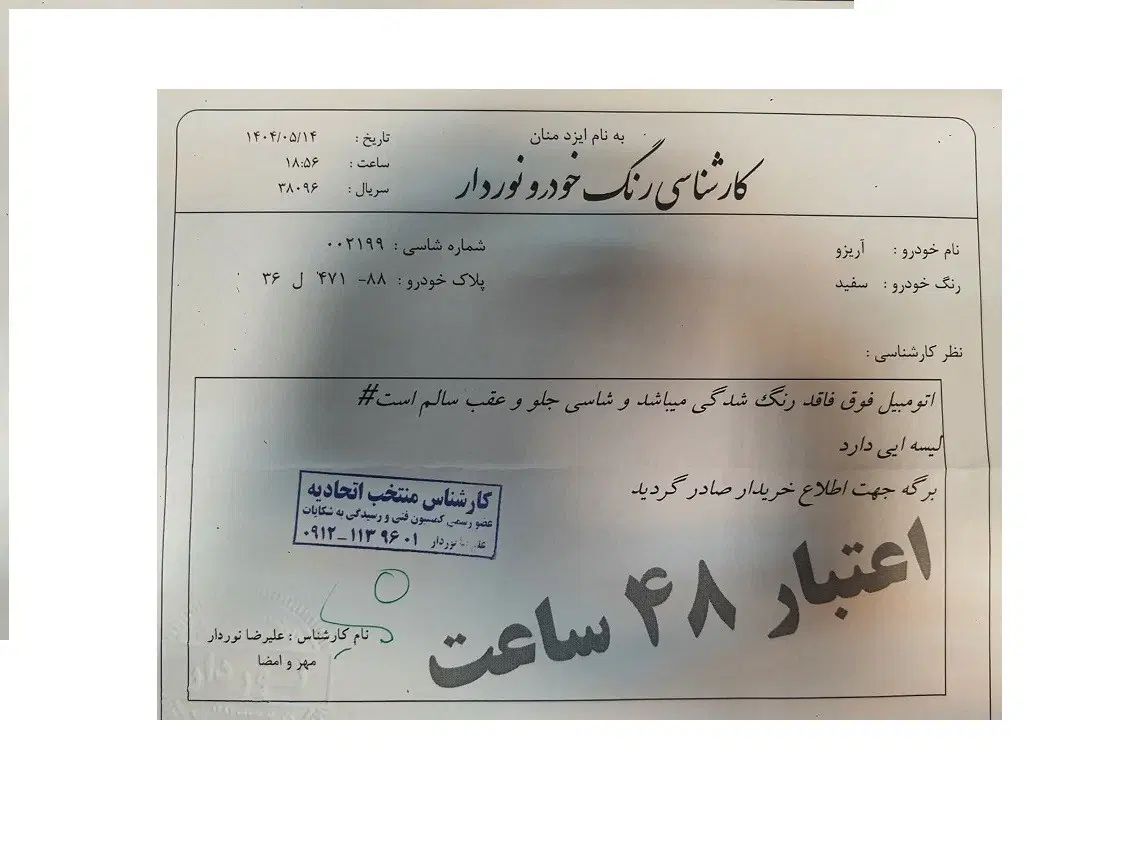 به نام ایزد منان
کارشناسی رنگ خودرو نوردار
تاریخ : ۱۴۰۴/۰۵/۱۴
ساعت : ۱۸:۵۶
سریال : ۳۸۰۹۶
نام خودرو : آریزو
شماره شاسی : ۰۰۲۱۹۹
رنگ خودرو : سفید
پلاک خودرو : ۸۸- ۴۷۱ ل ۳۶
نظر کارشناسی :
اتومبیل فوق فاقد رنگ شدگی میباشد و شاسی جلو و عقب سالم است#
لیسه ایی دارد
برگه جهت اطلاع خریدار صادر گردید
کارشناس منتخب اتحادیه
عضو رسمی کمسیون فنی و رسیدگی به شکایات
نوردار ۰۹۱۲-۱۱۳ ۹۶ ۰۱
اعتبار ۴۸ ساعت
نام کارشناس : علیرضا نوردار
مهر و امضا
نوردار